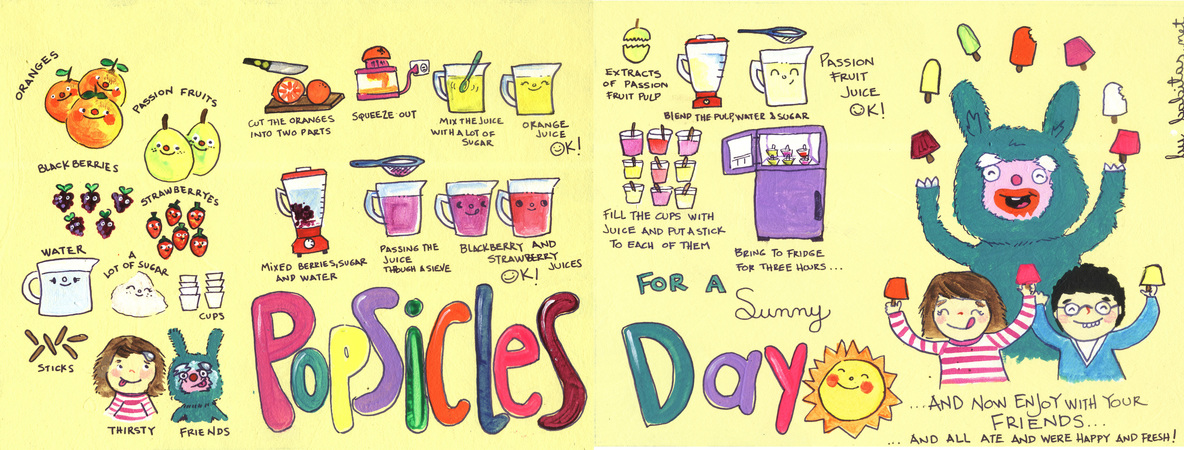 ORANGES
PASSION FRUITS
BLACKBERRIES
STRAWBERRYES
WATER
A
LOT OF SUGAR
CUPS
STICKS
THIRSTY
FRIENDS
CUT THE ORANGES
INTO TWO PARTS
SQUEEZE OUT
MIX THE JUICE
WITH A LOT OF
SUGAR
ORANGE
JUICE
OK!
MIXED BERRIES, SUGAR
AND WATER
PASSING THE
JUICE
THOUGH A SIEVE
BLACKBERRY AND
STRAWBERRY
JUICES
OK!
POPSICLES
EXTRACTS
OF PASSION
FRUIT PULP
BLEND THE PULP, WATER & SUGAR
PASSION
FRUIT
JUICE
OK!
FILL THE CUPS WITH
JUICE AND PUT A STICK
TO EACH OF THEM
BRING TO FRIDGE
FOR THREE HOURS...
FOR A
Sunny
Day
...AND NOW ENJOY WITH YOUR
FRIENDS...
... AND ALL ATE AND WERE HAPPY AND FRESH!